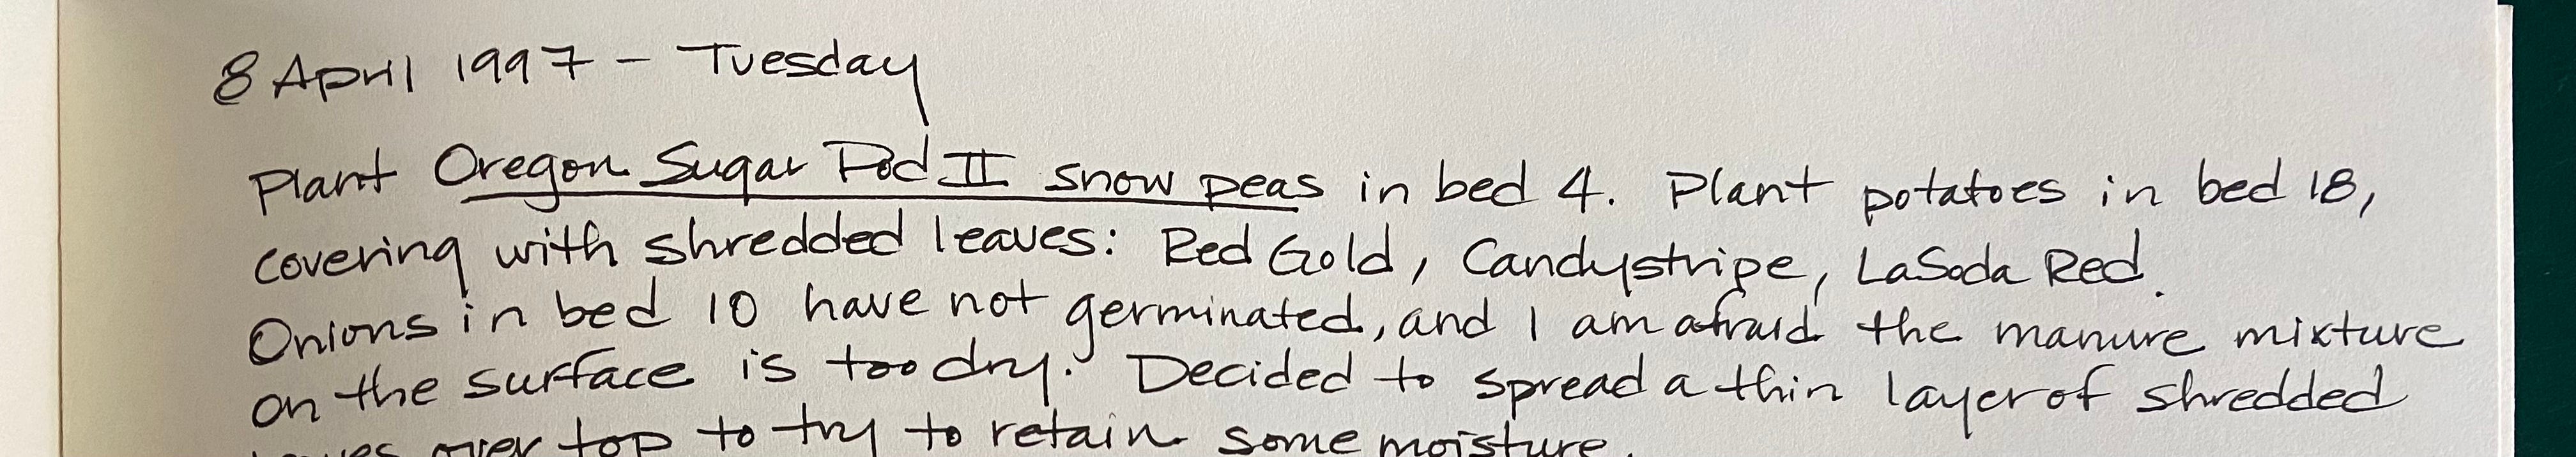 8 April 1997 - Tuesday
Plant Oregon Sugar Pod II snow peas in bed 4. Plant potatoes in bed 18,
covering with shredded leaves: Red Gold, Candystripe, LaSoda Red.
Onions in bed 10 have not germinated, and I am afraid the manure mixture
on the surface is too dry. Decided to spread a thin layer of shredded
leaves over top to try to retain some moisture.